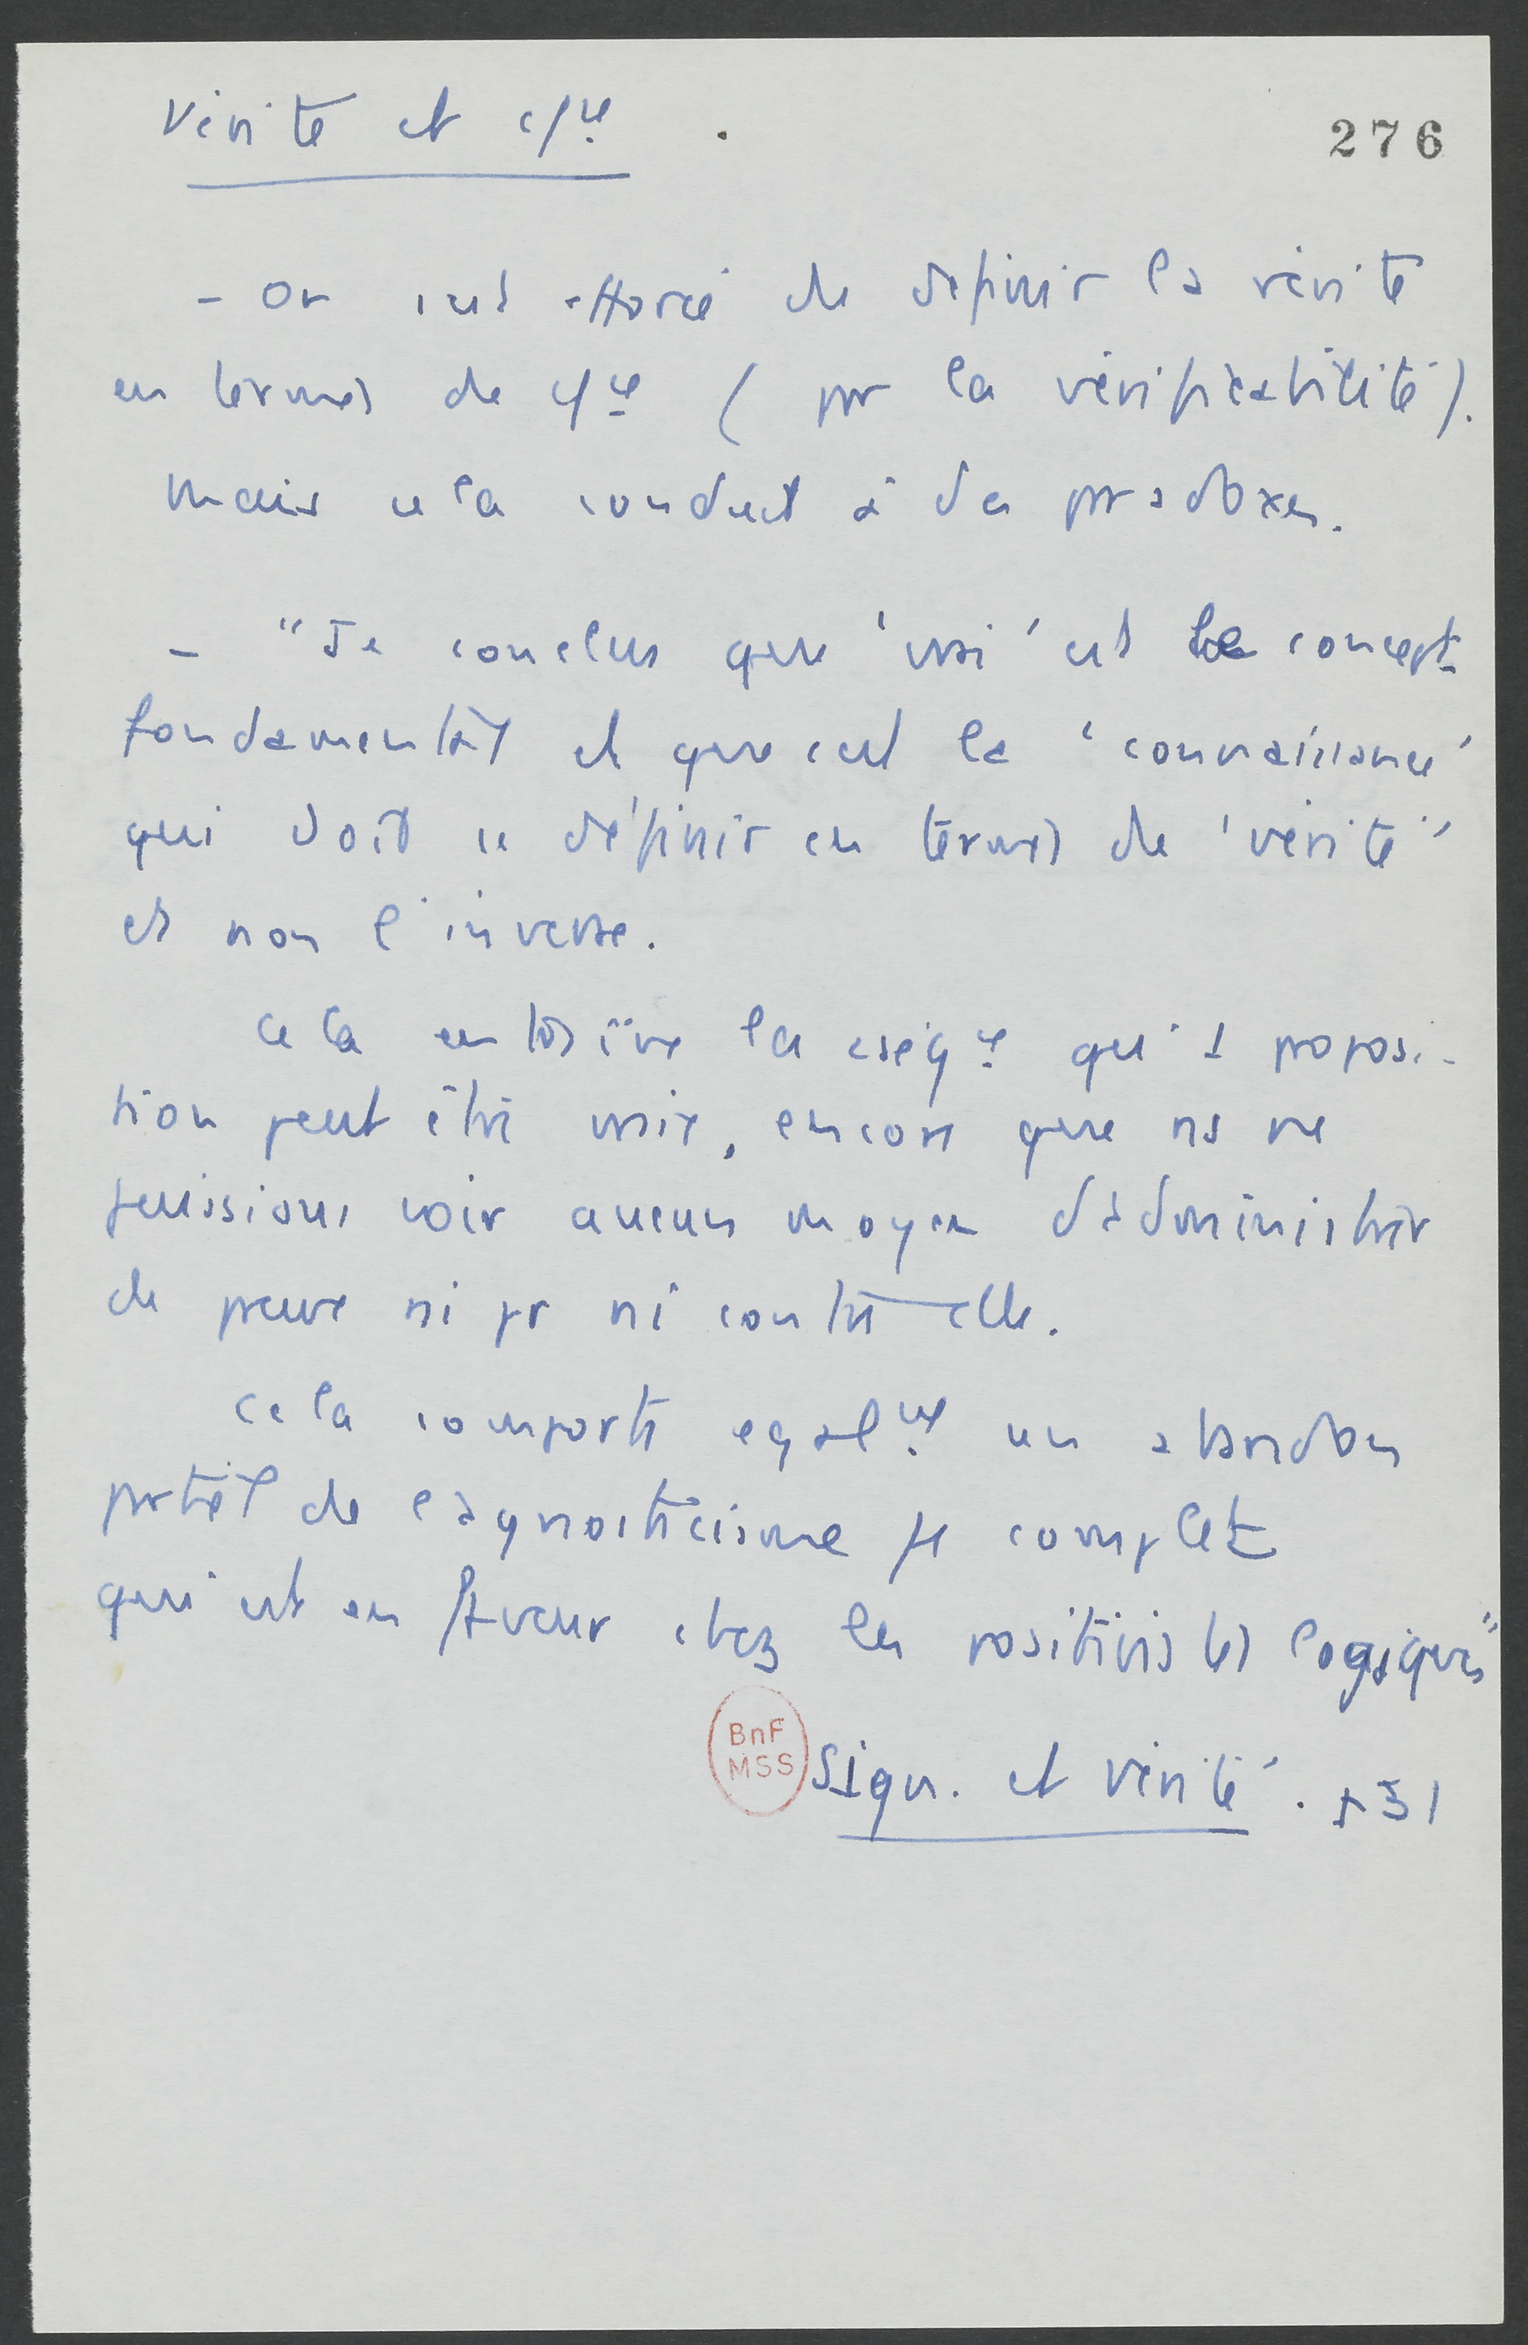 Vérité et c/ce.
276
- On s'est efforcé de definir la vérité
en termes de c/ce (par la vérificabilité).
Mais cela conduit à des paradoxes.
- "Je conclus que 'vrai' est le concept
fondamental et que c'est la 'connaissance'
qui doit se définir en termes de 'vérité'
et non l'inverse.
Cela entraîne la cséqce qu'1 proposi-
tion peut être vraie, encore que ns ne
puissions voir aucun moyen d'administrer
de preuve ni pr ni contre elle.
Cela comporte egalmt un abandon
partiel de l'agnosticisme complet
qui est en faveur chez les positivistes logiques"
BnF
MSS
Sign. et vérité. 31